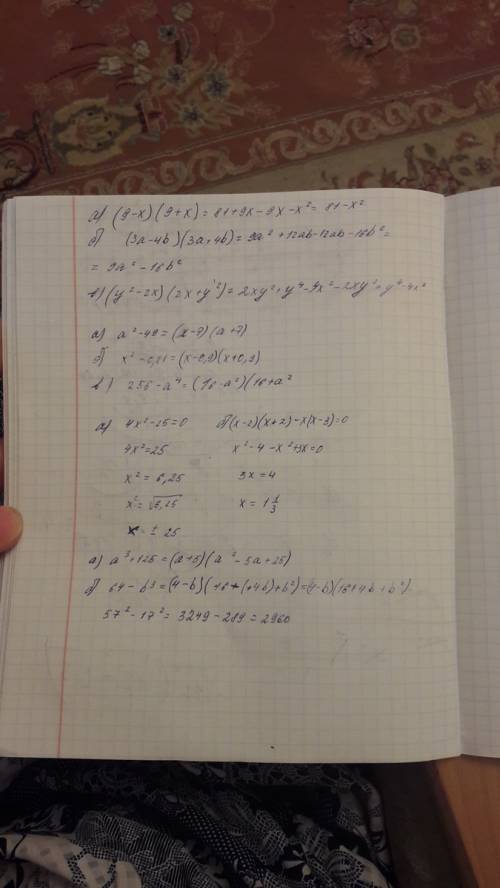 а) (9-x)(9+x)=81+9x-9x-x²=81-x²
б) (3a-4b)(3a+4b)=9a²+12ab-12ab-16b²=
=9a²-16b²
в) (y²-2x)(2x+y²)=2xy²+y⁴-4x²-2xy²=y⁴-4x²
а) a²-49=(a-7)(a+7)
б) x²-0,81=(x-0,9)(x+0,9)
в) 256-a⁴=(16-a²)(16+a²
а) 4x²-25=0 б) (x-2)(x+2)-x(x-3)=0
4x²=25 x²-4-x²+3x=0
x²=6,25 3x=4
x²=√6,25 x=1 1/3
x=± 25
а) a³+125=(a+5)(a²-5a+25)
б) 64-b³=(4-b)(16+(+4b)+b²)=(4-b)(16+4b+b²)
57²-17²=3249-289=2960